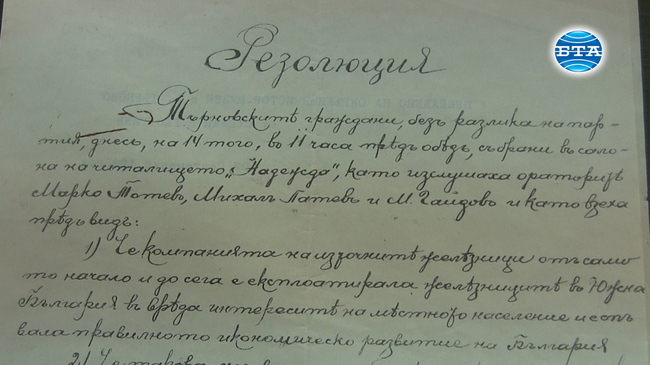 БТА
Резолюция
Търновските граждани, безъ разлика на пар-
тия, днесь, на 14 того, въ 11 часа прѣдъ обѣдъ, събрани въ сало-
на на читалището „Надежда“, като изслушаха ораторитѣ
Марко Тотевъ, Михаилъ Патевъ и М. Гайдовъ и като взеха
прѣдъ видъ:
1) Че компанията на източнитѣ желѣзници отъ само
то начало и до сега е експлоатирала желѣзницитѣ въ Южна
България въ врѣда интереситѣ на мѣстното население и спъ
вала правилното икономическо развитие на България
2) Че такова